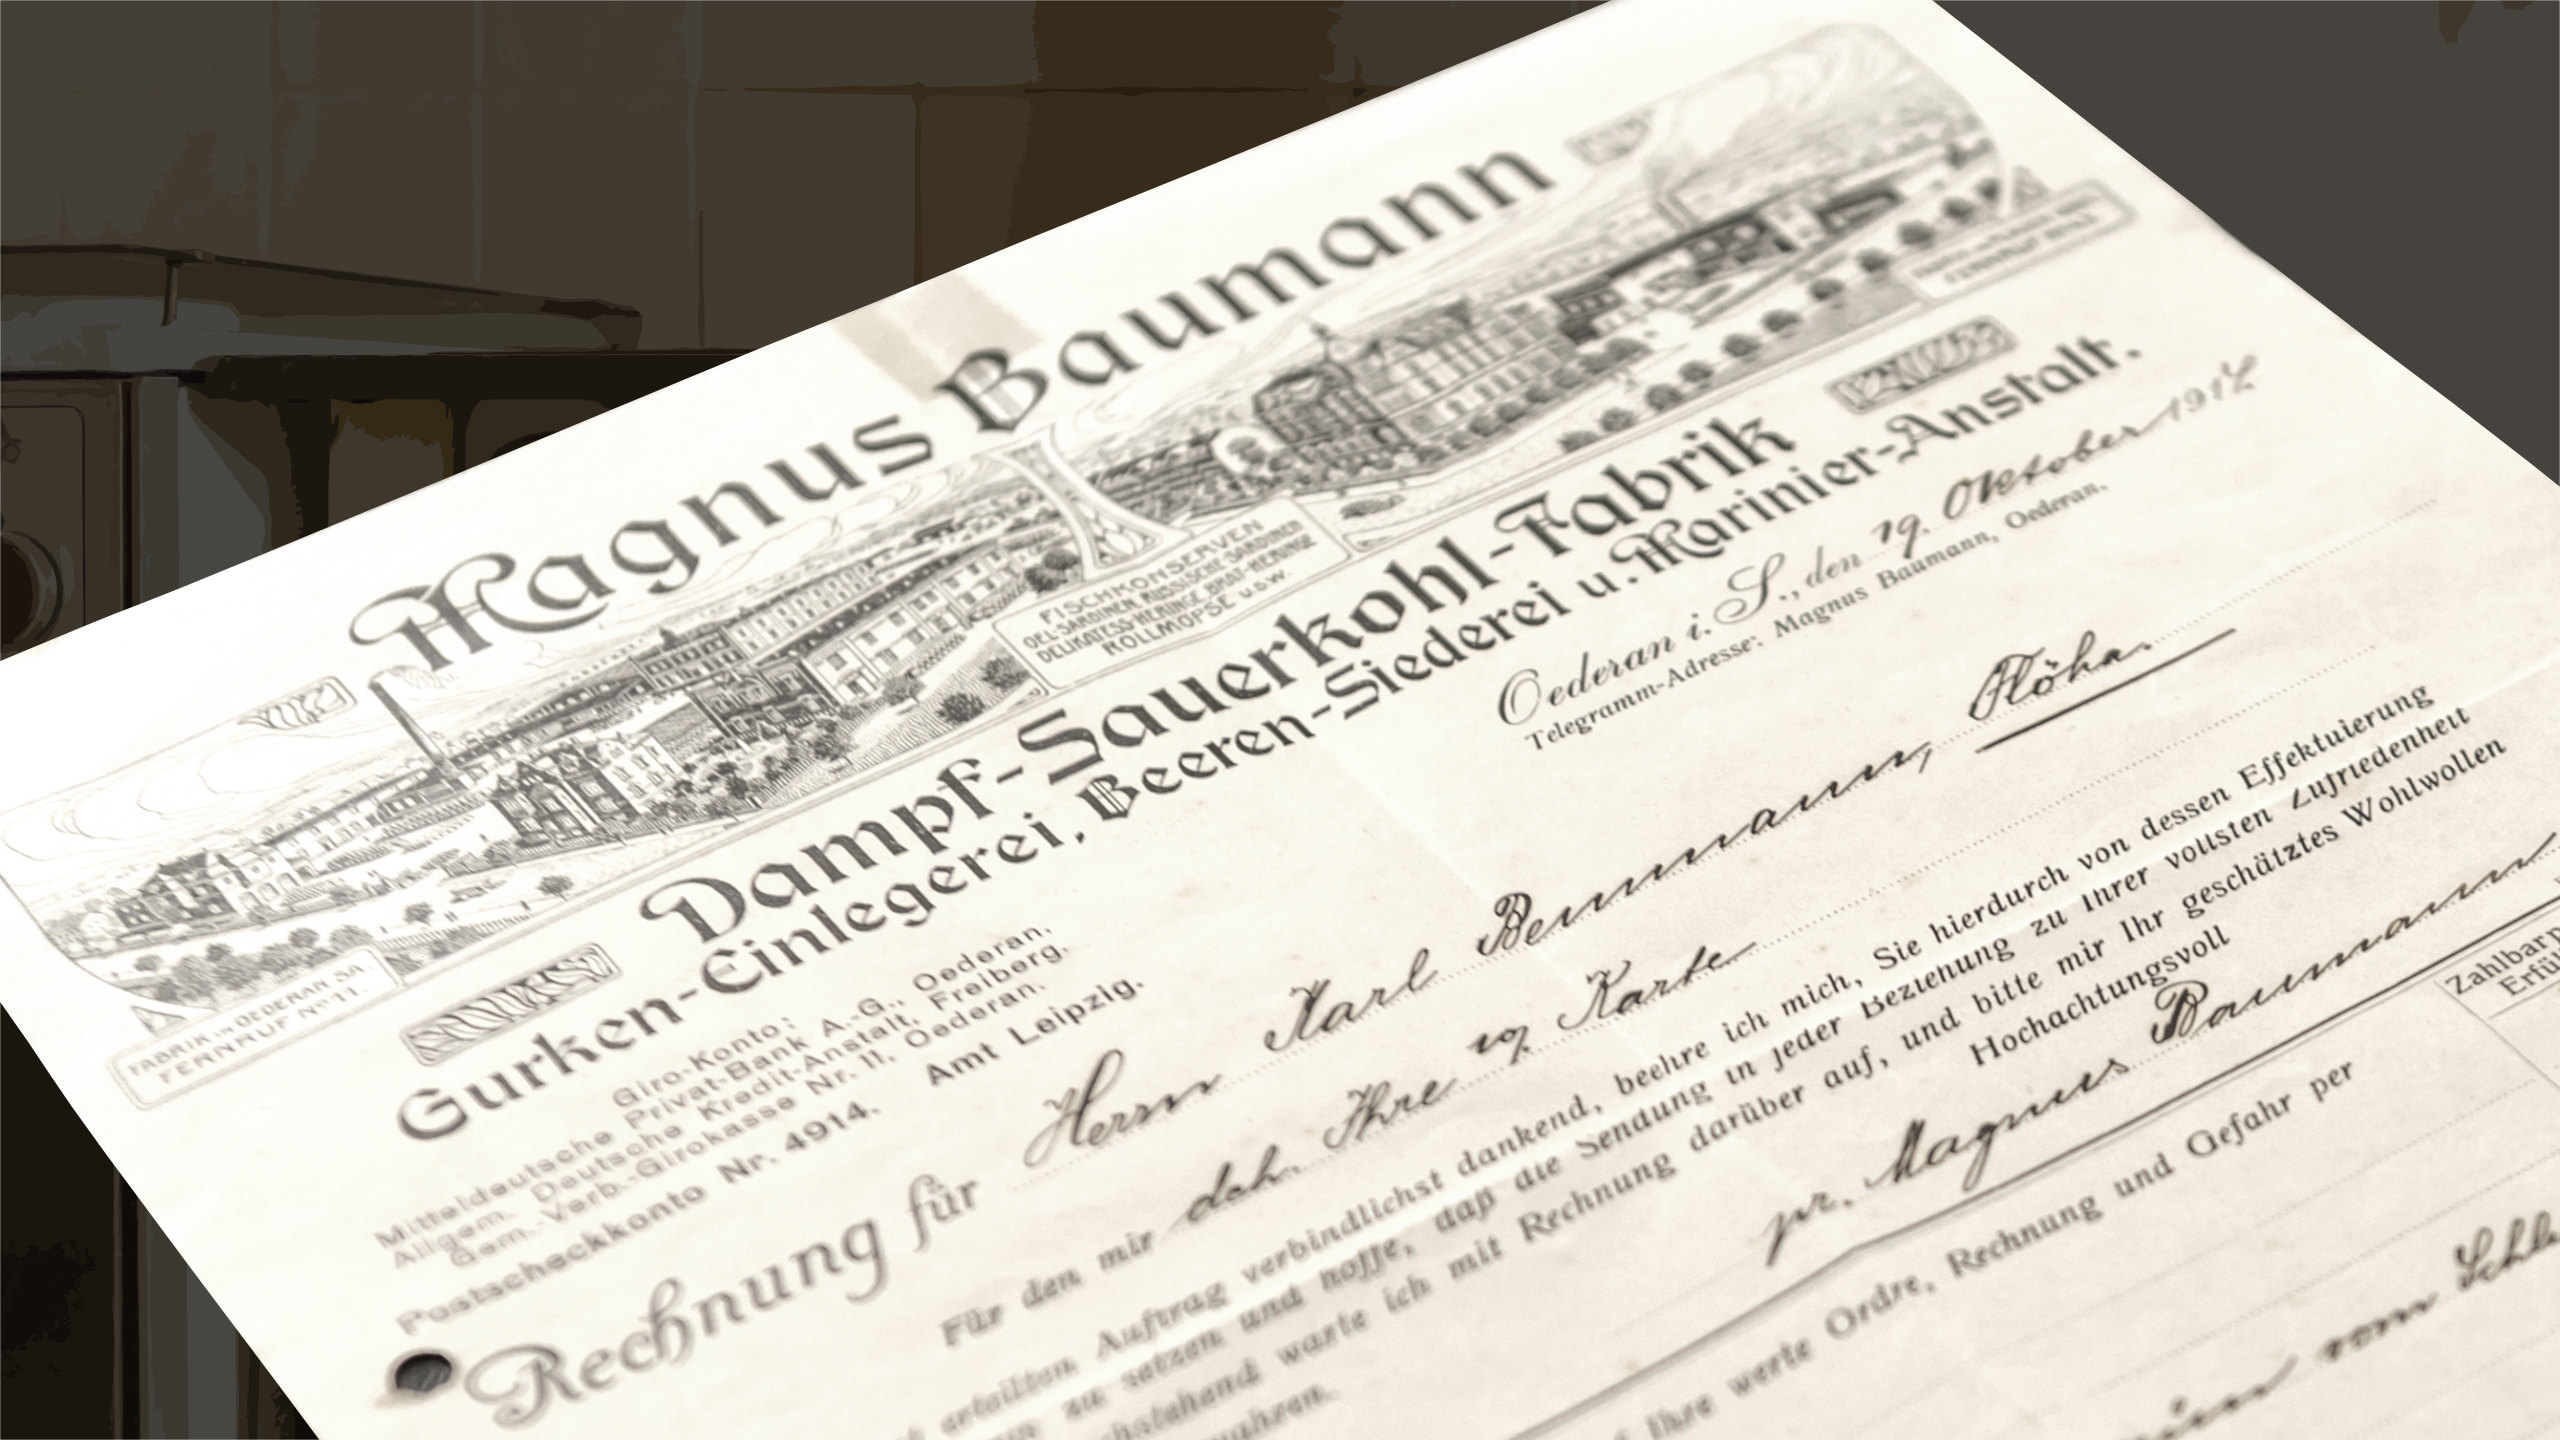 Magnus Baumann
FISCHKONSERVEN
OEL-SARDINEN, RUSSISCHE-SARDINEN
DELIKATESS-HERINGE, BRAT-HERINGE
ROLLMÖPSE u.s.w.
FABRIK IN OEDERAN SA.
FERNRUF Nº 11.
Dampf-Sauerkohl-Fabrik
Gurken-Einlegerei, Beeren-Siederei u. Marinier-Anstalt.
Oederan i. S., den 19. Oktober 191
Telegramm-Adresse: Magnus Baumann, Oederan.
Giro-Konto:
Mitteldeutsche Privat-Bank A.-G., Oederan,
Allgem. Deutsche Kredit-Anstalt, Freiberg.
Gem.-Verb.-Girokasse Nr. 11, Oederan.
Postscheckkonto Nr. 4914. Amt Leipzig.
Rechnung für Herrn Karl Bemmann, Flöha.
Für den mir dch. Ihre Karte
erteilten Auftrag verbindlichst dankend, beehre ich mich, Sie hierdurch von dessen Effektuierung
zu setzen und hoffe, daß die Sendung in jeder Beziehung zu Ihrer vollsten Zufriedenheit
warte ich mit Rechnung darüber auf, und bitte mir Ihr geschätztes Wohlwollen
Hochachtungsvoll
pr. Magnus Baumann
Ihre werte Ordre, Rechnung und Gefahr per
vom